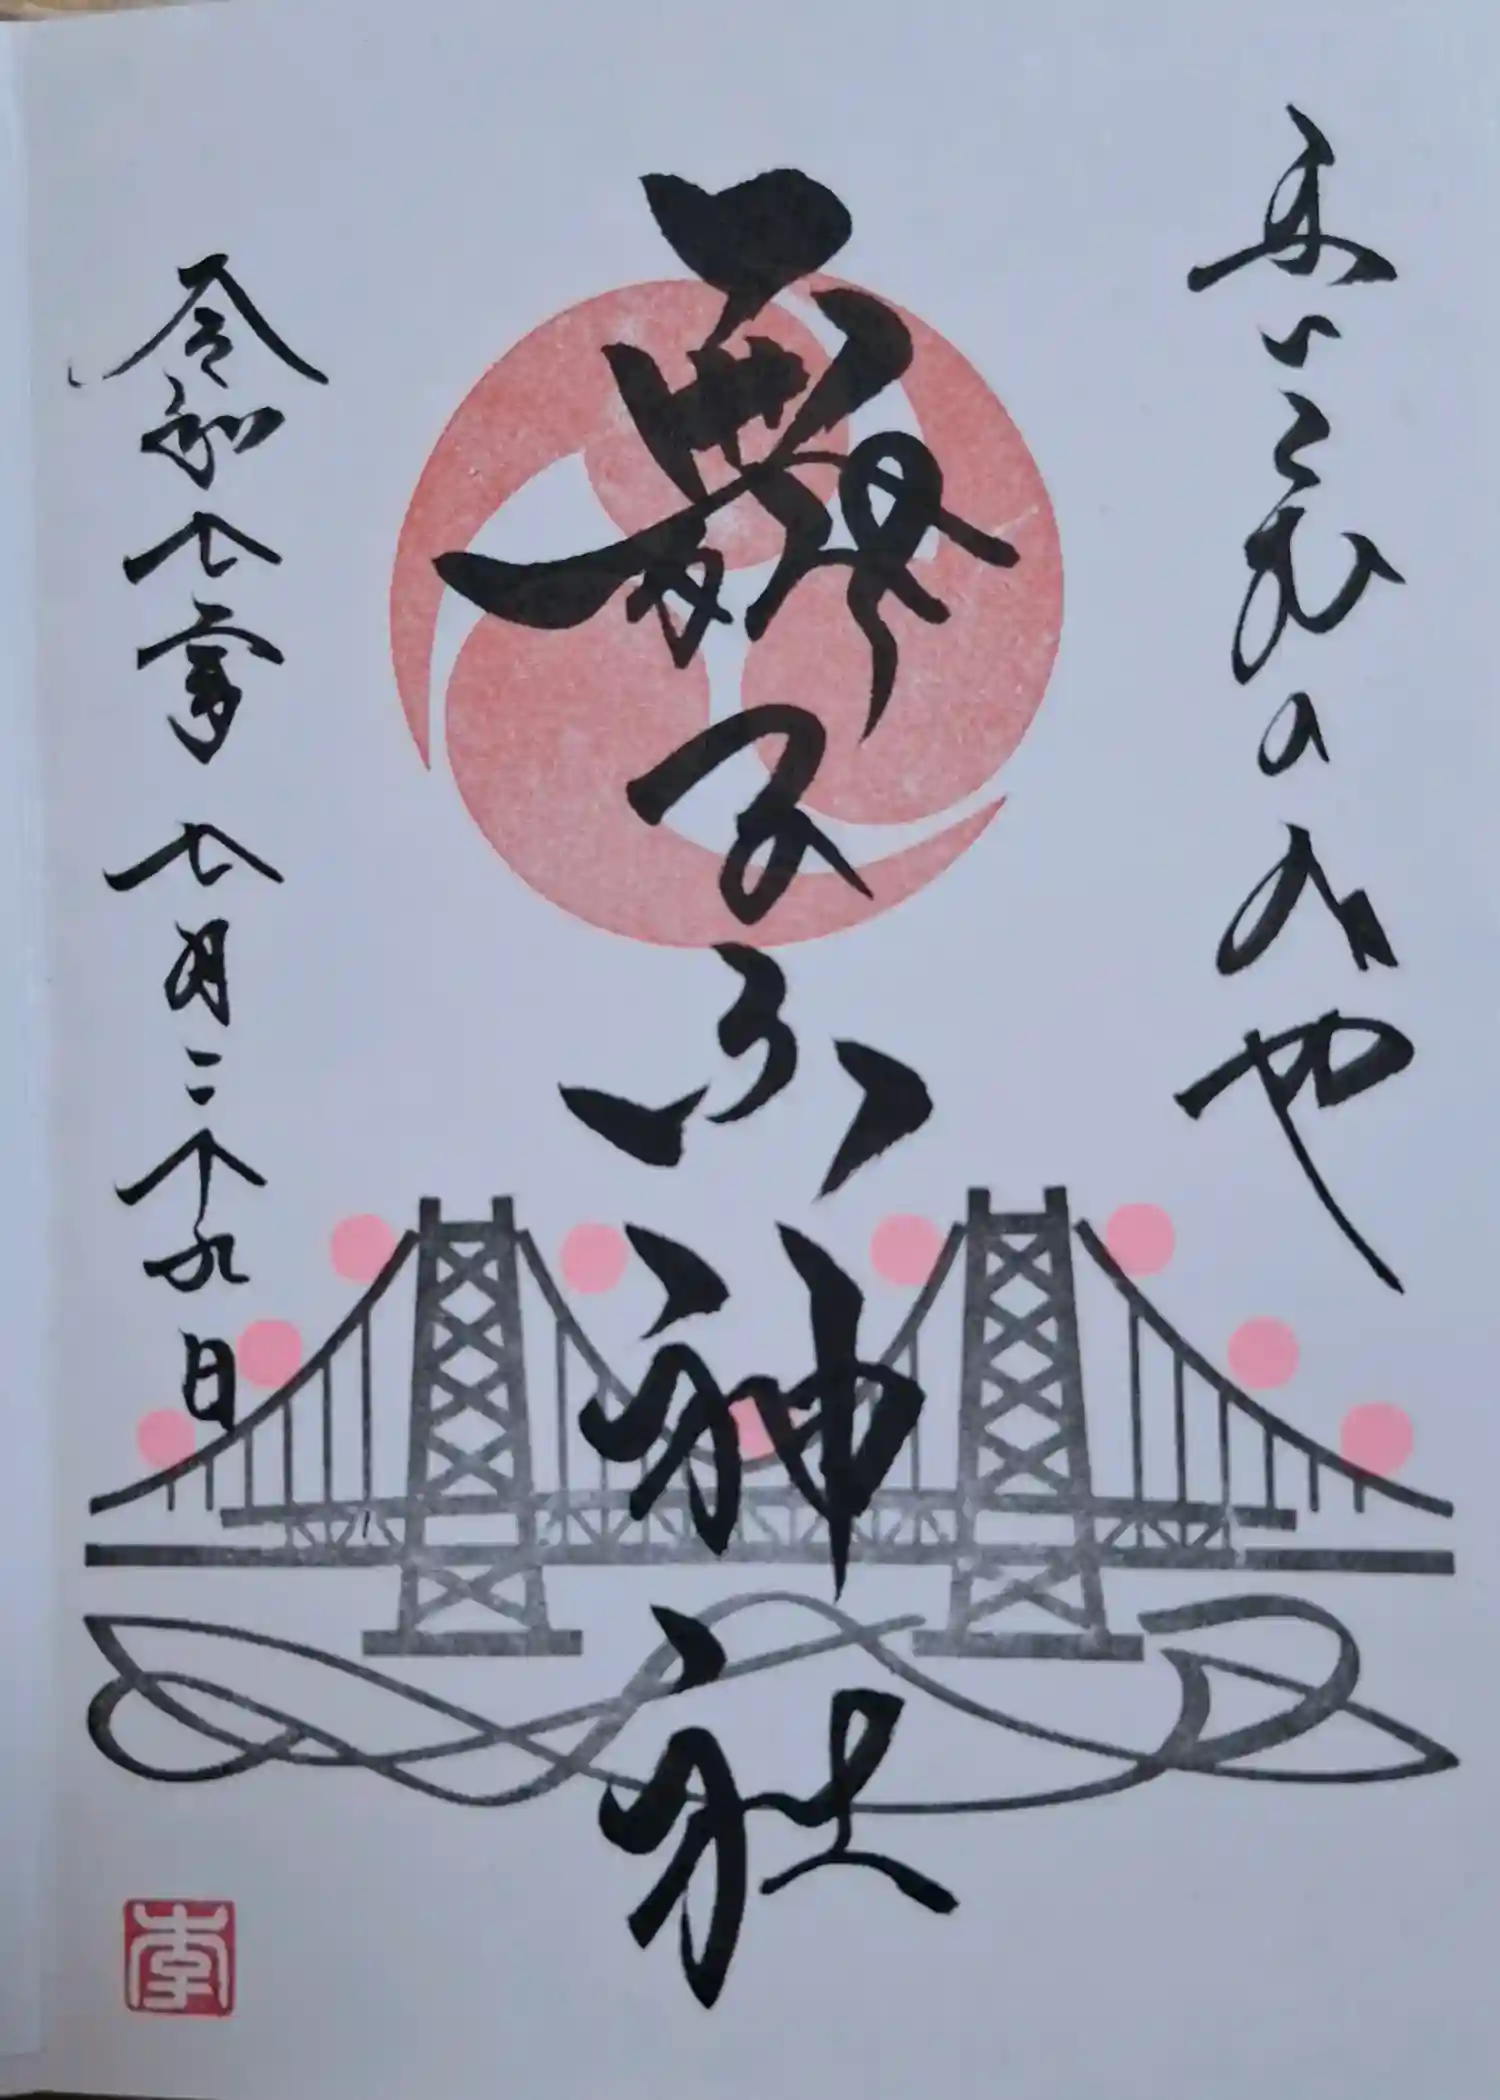 まいこむのみや
舞子六神社
令和七年七月二十九日